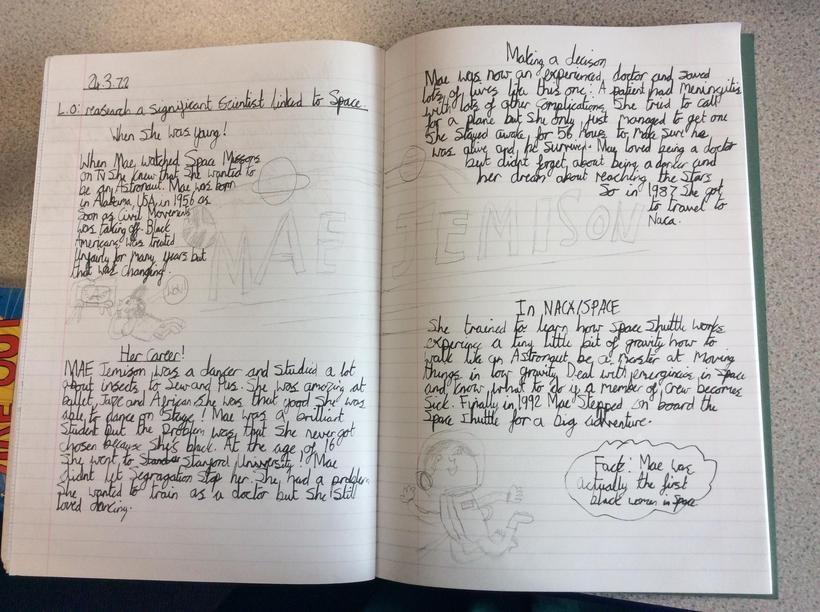 24.3.22
L.O: research a significant Scientist linked to Space.
When She was Young!
When Mae watched Space Missons
on TV She knew that She wanted to
be an Astronaut. Mae was born
in Alabama, USA in 1956 as
Soon as Civil Movements
was taking off. Black
Americans was treated
Unfairly for many years but
that was changing.
MAE
Her Career!
MAE Jemison was a dancer and Studied a lot
about insects to Sew and Pus. She was amazing at
ballet, Jazz and African. She was that good She was
able to dance on Stage! Mae was a brilliant
Student but the Problem was that She never got
chosen because She's black. At the age of 16
She went to Stanford University! Mae
didnt let Segragation Stop her. She had a problem
She wanted to train as a doctor but She Still
loved dancing.
Making a decison
Mae was now an experienced, doctor and saved
lots of lives like this one: A patient had Meningitis
with lots of other complications. She tried to call
for a plane but She only just managed to get one
She Stayed awake for 56 hours to make Sure he
was alive and he Survived. May loved being a doctor
but didnt forget about being a dancer and
her dream about reaching the Stars
So in 1987 She got
to travel to
Naca.
JEMISON
In NACA/SPACE
She trained to learn how Space Shuttle works
experience a tiny little bit of gravity how to
walk like an Astronaut be a Master at Moving
things in low gravity. Deal with emergencies in Space
and know what to do if a member of crew becomes
Sick. Finally in 1992 Mae Stepped on board the
Space Shuttle for a big adventure.
Fact: Mae was
actually the first
black women in Space